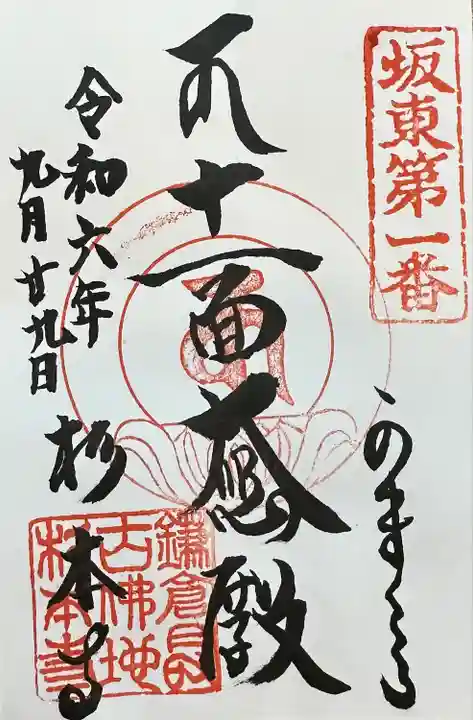 坂東第一番
かまくら
十一面大悲殿
令和六年
九月廿九日
杉本寺
鎌倉最
古佛地
杉本寺